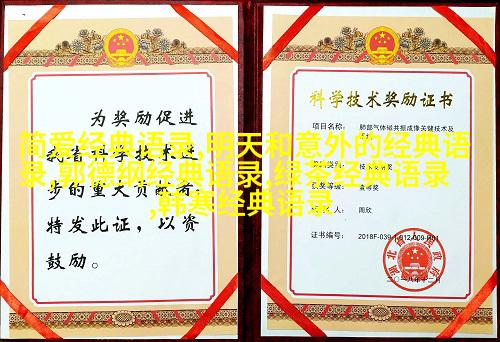 为奖励促进
我省科学技术进
步的重大贡献者,
特发此证,以资
鼓励。
科学技术奖励证书
项目名称:肺部气体磁共振成像关键技术及
奖励类别:
获奖等级:壹等奖
周欣
证书编号:2018F-039-1-012-009-R01
湖北省人民政府
二〇一八年十二月
简爱经典语录,明天和意外的经典语
录,郭德纲经典语录,绿茶经典语录
,韩寒经典语录